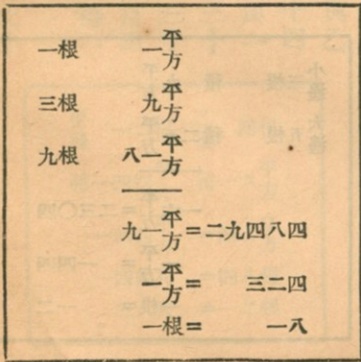 一根 一平方
三根 九平方
九根 八一平方
九一平方=二九四八四
一平方= 三二四
一根= 一八